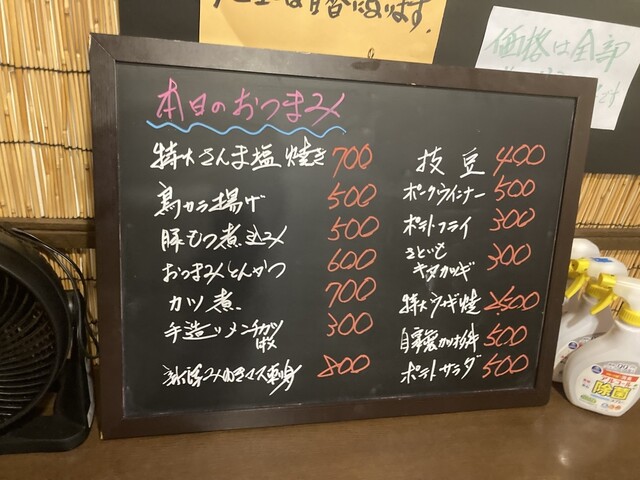 メニューは日替になります。
価格は全部
です
本日のおつまみ
特大さんま塩焼き 700
鳥カラ揚げ 500
豚もつ煮込み 500
おつまみとんかつ 600
カツ煮 700
手造りメンチカツ 300
刺身 800
枝豆 400
ポークウインナー 500
ポテトフライ 300
さといも
キヌカツギ 300
特大 焼 2500
自家製 500
ポテトサラダ 500
除菌